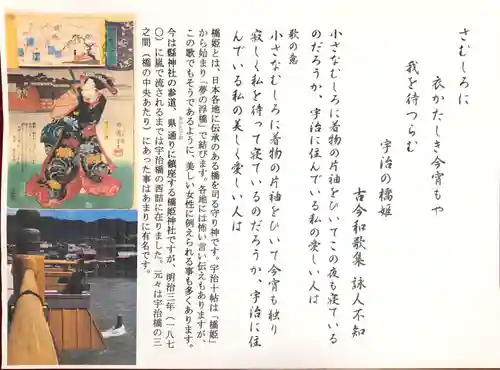 さむしろに
衣かたしき今宵もや
我を待つらむ
宇治の橋姫
古今和歌集 詠人不知
小さなむしろに着物の片袖をひいてこの夜も寝ている
のだろうか、宇治に住んでいる私の愛しい人は
歌の意
小さなむしろに着物の片袖をひいて今宵も独り
寂しく私を待って寝ているのだろうか、宇治に住
んでいる私の美しく愛しい人は
橋姫とは、日本各地に伝承のある橋を司る守り神です。宇治十帖は「橋姫」
から始まり「夢の浮橋」で結びます。各地には怖い言い伝えもありますが、
この歌でもそうであるように、美しい女性に例えられる事も多くあります。
今は縣神社の参道、県通りに鎮座する橋姫神社ですが、明治三年(一八七
〇)に嵐で流されるまでは宇治橋の西詰に在りました。元々は宇治橋の三
之間(橋の中央あたり)にあった事はあまりに有名です。